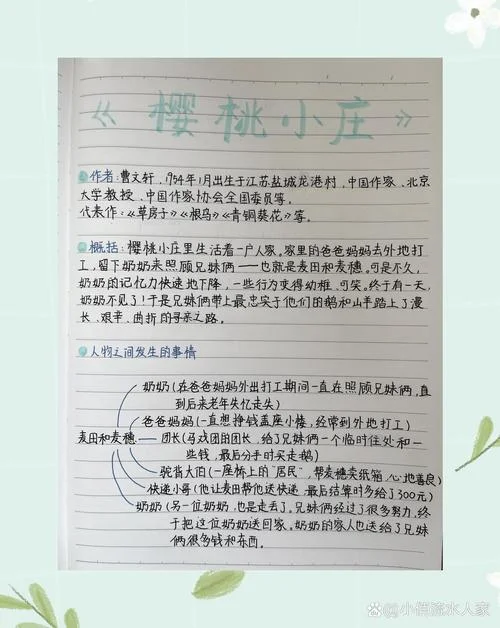 《樱桃小庄》
作者:曹文轩,1954年1月出生于江苏盐城龙港村,中国作家、北京
大学教授、中国作家协会全国委员等。
代表作:《草房子》《根鸟》《青铜葵花》等。
概括:樱桃小庄里生活着一户人家。家里的爸爸妈妈去外地打
工,留下奶奶来照顾兄妹俩——也就是麦田和麦穗。可是不久,
奶奶的记忆力快速地下降,一些行为变得幼稚、可笑。终于有一天,
奶奶不见了!于是兄妹俩带上最忠实于他们的鹅和山羊踏上了漫
长、艰辛、曲折的寻亲之路。
人物之间发生的事情
奶奶(在爸爸妈妈外出打工期间一直在照顾兄妹俩,直
到后来老年失忆走失)
爸爸妈妈(一直想挣钱盖座小楼,经常到外地打工)
麦田和麦穗
团长(马戏团的团长,给了兄妹俩一个临时住处和一
些钱,最后分手时买走鹅)
驼背大伯(一座桥上的"居民",帮麦穗卖纸箱,心地善良)
快递小哥(他让麦田帮他送快递,最后结算时多给了300元)
奶奶(另一位奶奶,也是走丢了。兄妹俩经过了很多努力,终
于把这位奶奶送回家。奶奶的家人也送给了兄妹
俩很多钱和东西。
小俏流水人家